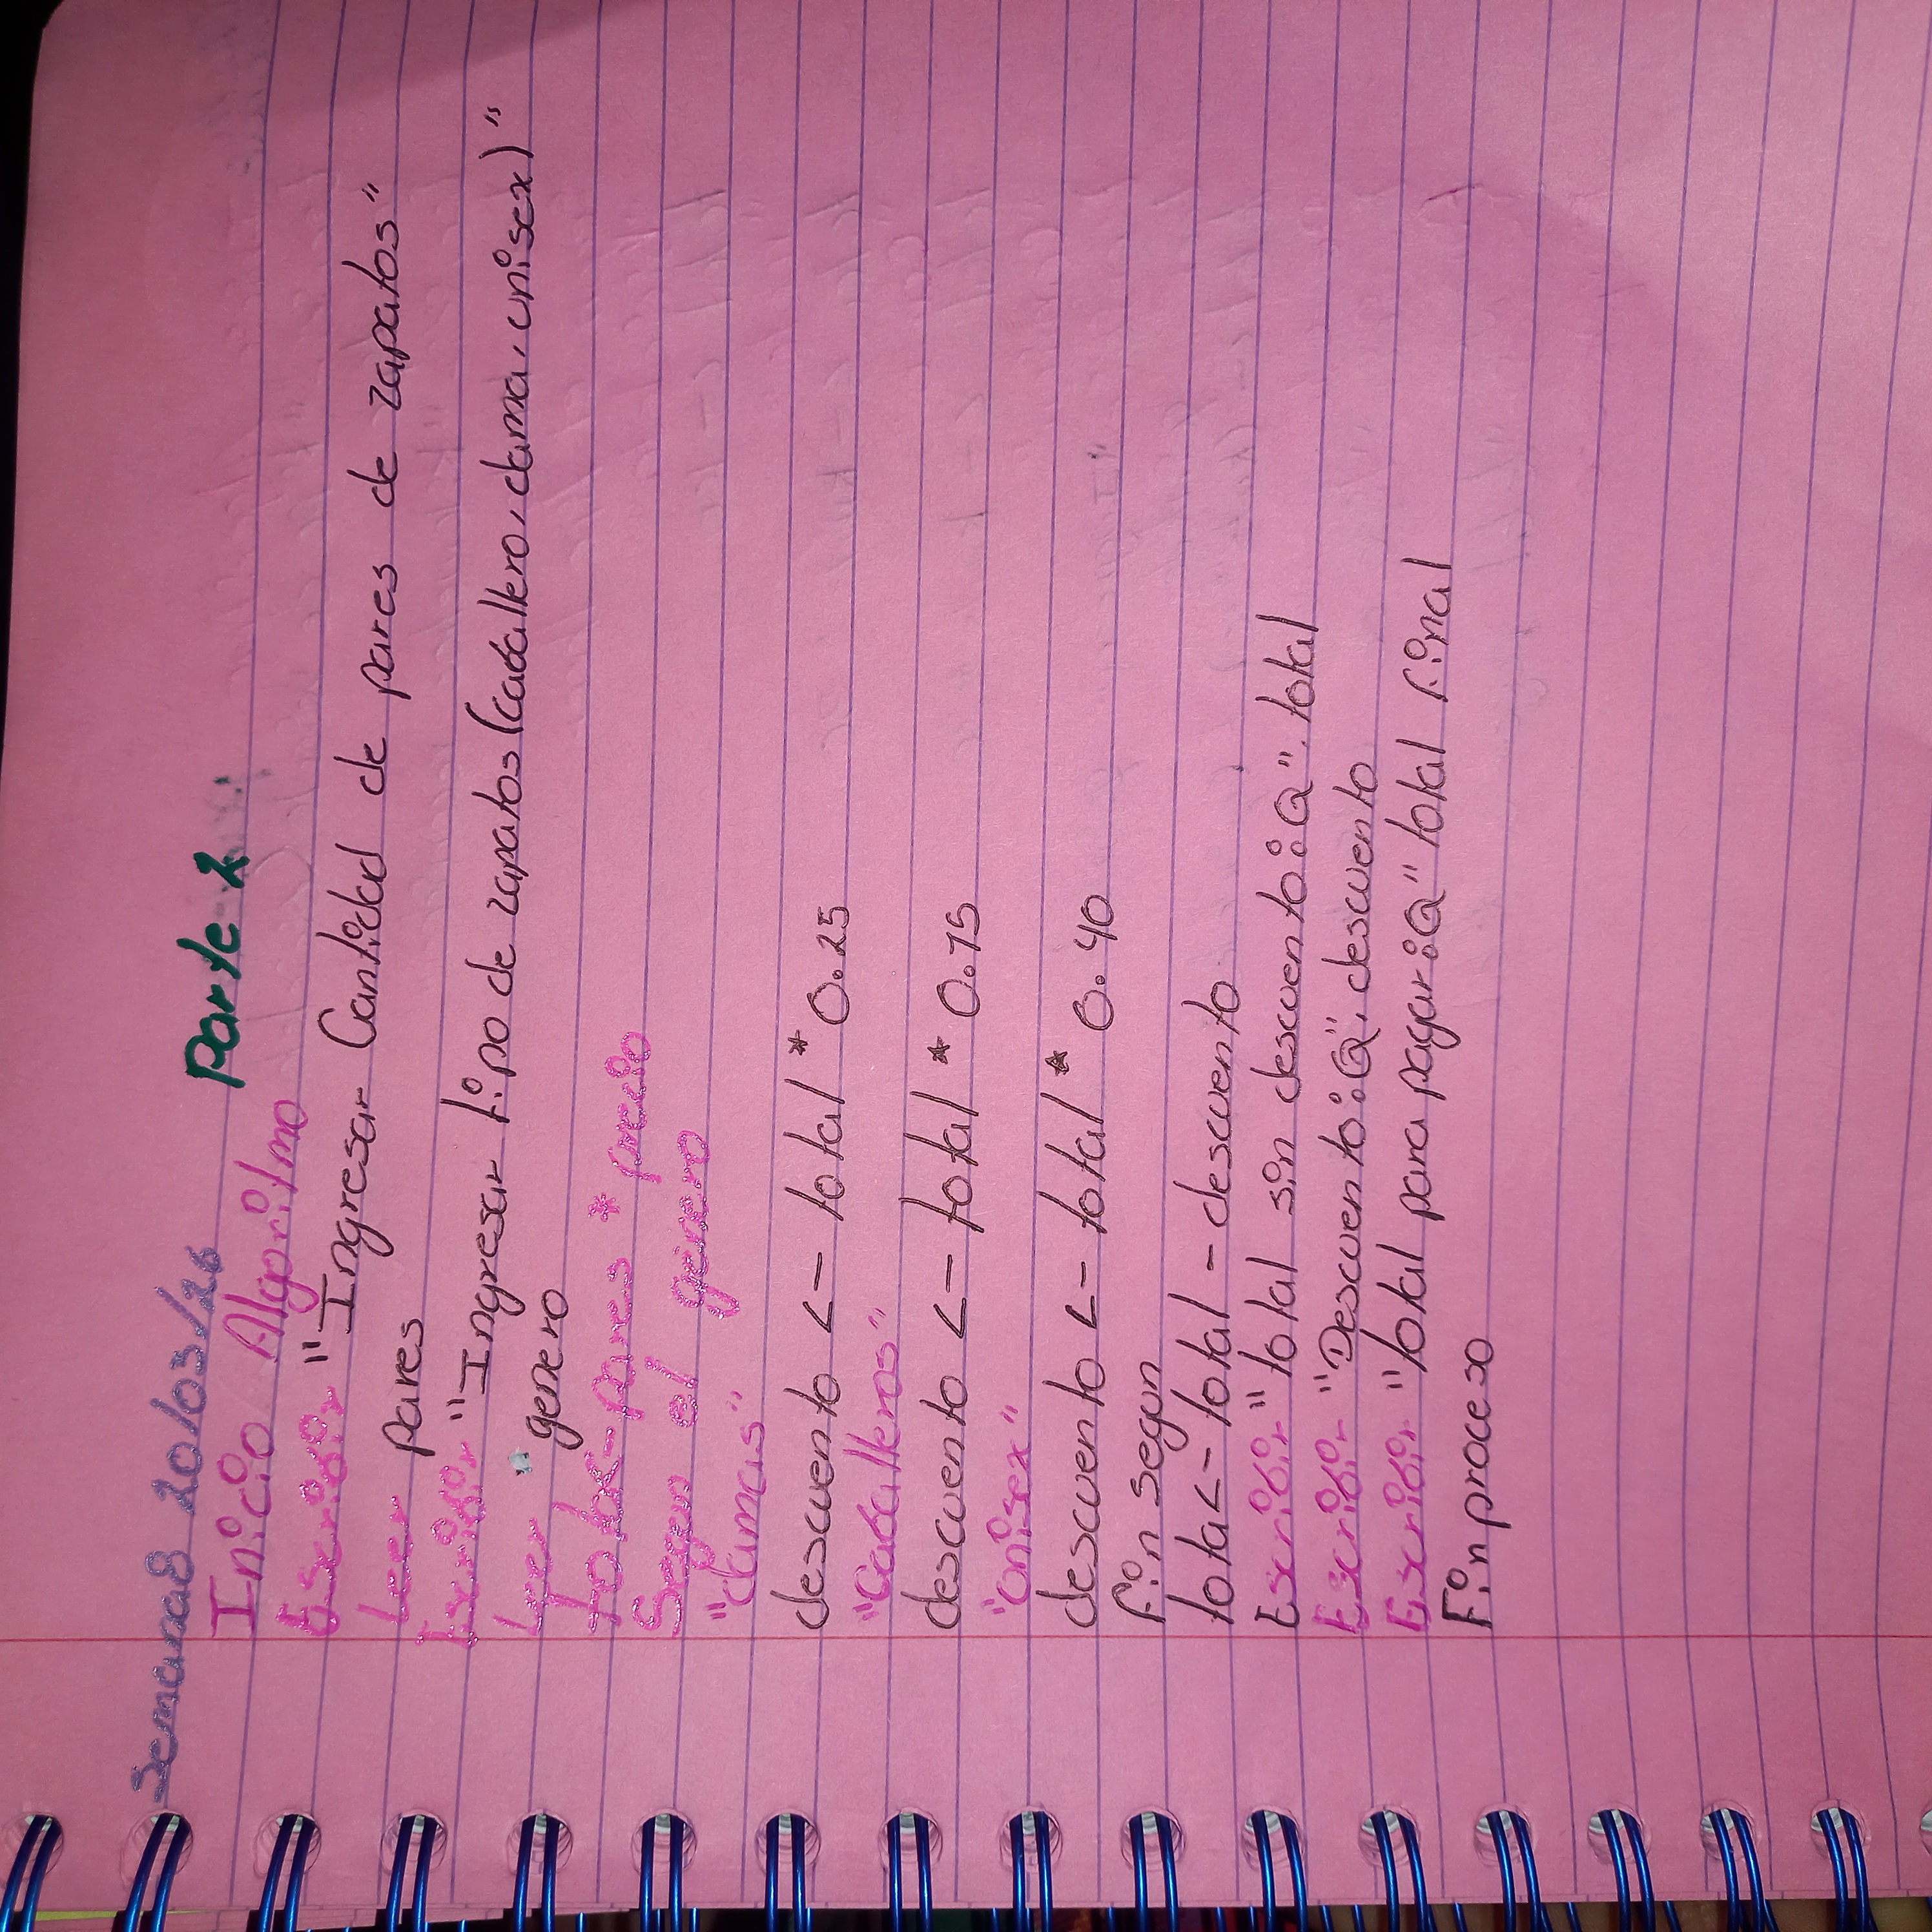 Semana 8 20/03/26
Parte 2
Inicio Algoritmo
Escribir "Ingresar Cantidad de pares de zapatos"
Leer pares
Escribir "Ingresar tipo de zapatos (caballero, dama, unisex)"
Leer genero
total<-pares * precio
Segun el genero
"damas"
descuento <- total * 0.25
"Caballeros"
descuento <- total * 0.15
"Unisex"
descuento <- total * 0.40
fin segun
total<- total - descuento
Escribir "total sin descuento: Q", total
Escribir "Descuento: Q", descuento
Escribir "total para pagar: Q" total final
Fin proceso